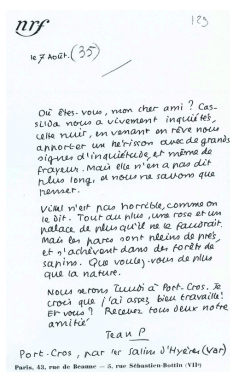 nrf
129
le 7 Août. (35)
Où êtes-vous, mon cher ami ? Cas-
silda nous a vivement inquiétés,
cette nuit, en venant en rêve nous
apporter un hérisson avec de grands
signes d'inquiétude, et même de
frayeur. Mais elle n'en a pas dit
plus long, et nous ne savons que
penser.
Vittel n'est pas horrible, comme on
le dit. Tout au plus, une rose et un
palace de plus qu'il ne le faudrait.
Mais les parcs sont pleins de prés,
et s'achèvent dans des forêts de
sapins. Que voulez-vous de plus
que la nature.
Nous serons lundi à Port-Cros. Je
crois que j'ai assez bien travaillé.
Et vous ? Recevez tous deux notre
amitié
Jean P
Port-Cros, par les Salins d'Hyères (Var)
Paris, 43, rue de Beaune — 5, rue Sébastien-Bottin (VIIe)